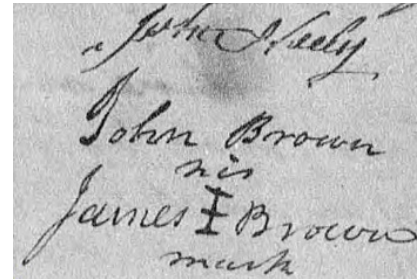 John Neely
John Brown
his
James I Brown
mark